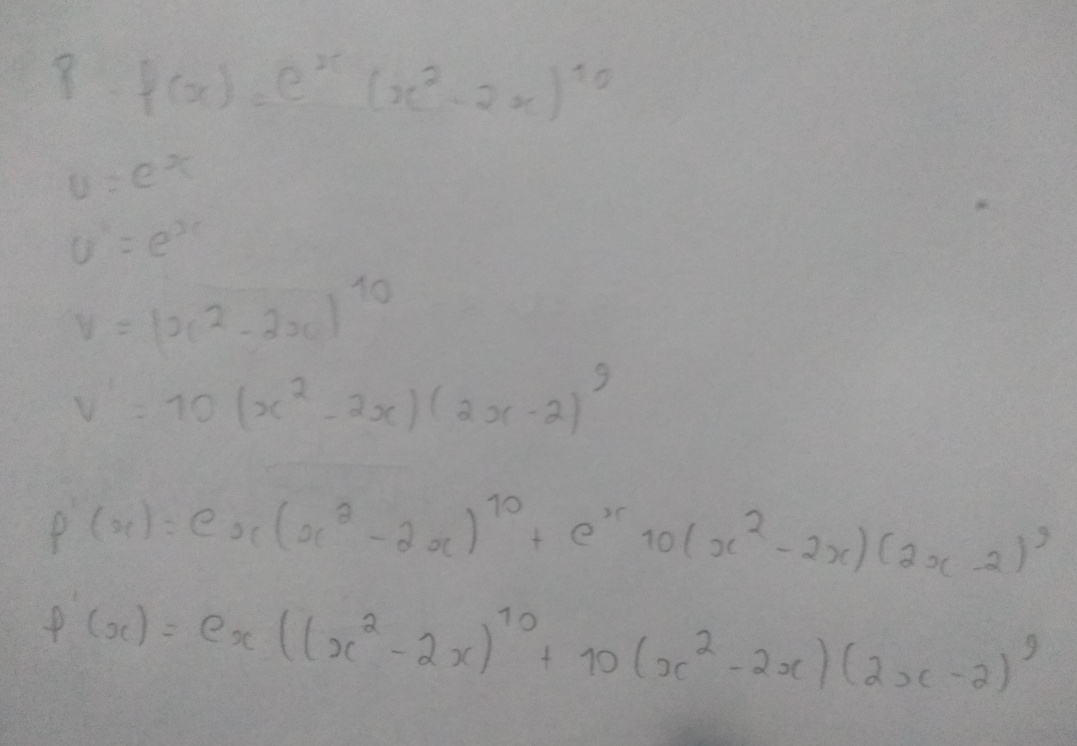 8 - f(x) = e^x (x² - 2x)^10
u = e^x
u' = e^x
v = (x² - 2x)^10
v' = 10 (x² - 2x)(2x - 2)^9
f'(x) = ex(x² - 2x)^10 + e^x 10(x² - 2x)(2x - 2)^9
f'(x) = ex((x² - 2x)^10 + 10(x² - 2x)(2x - 2)^9